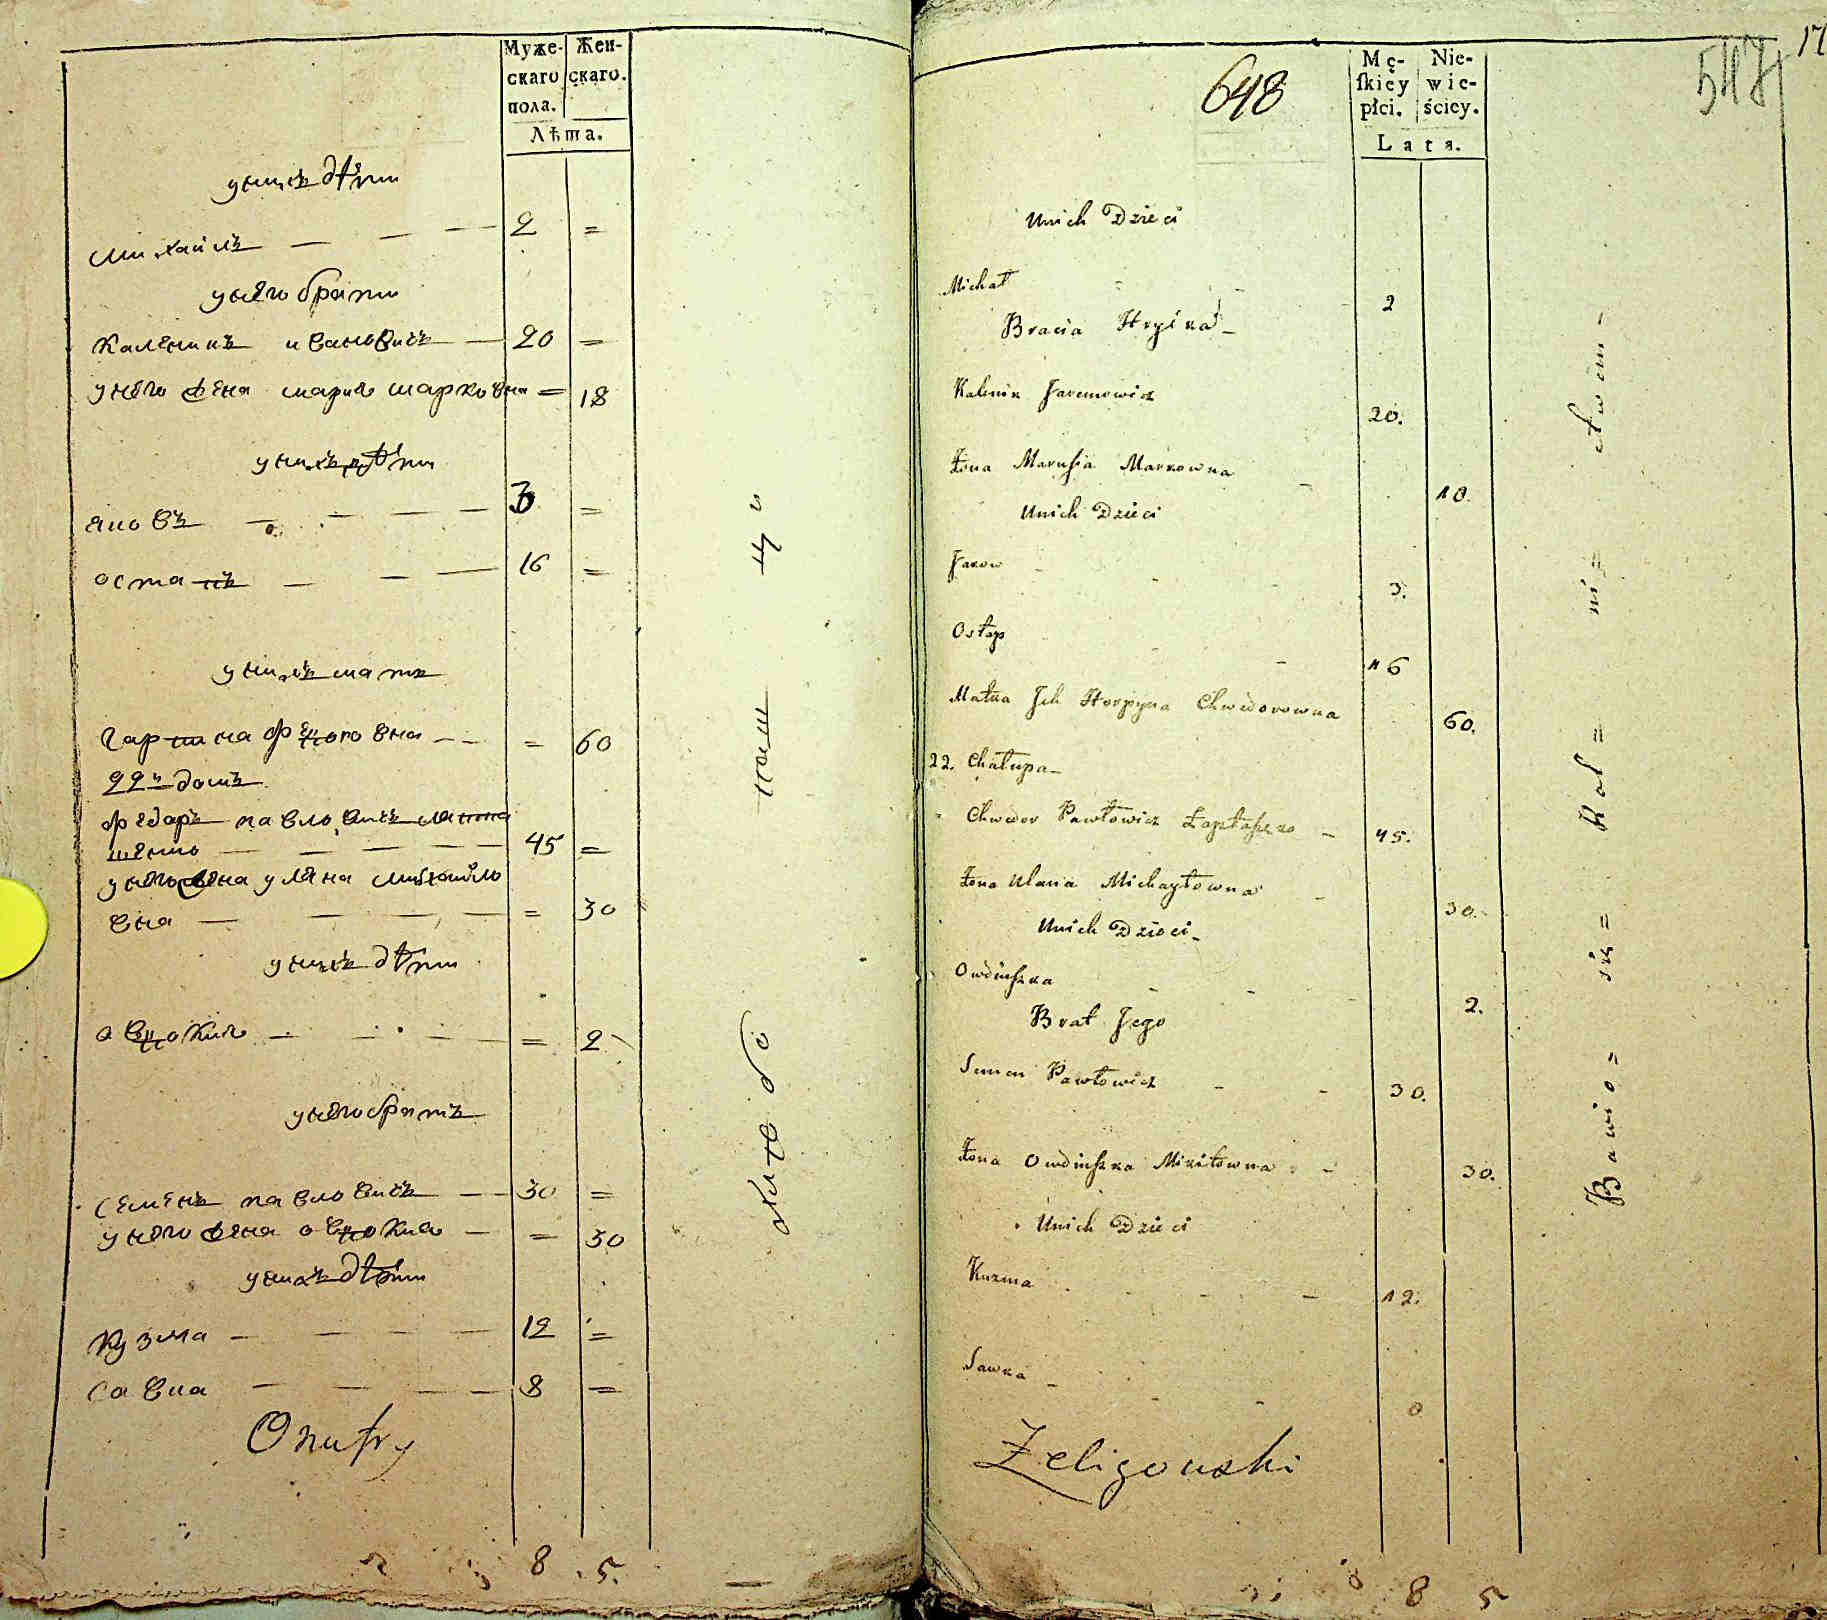 Муже- Жен-
скаго скаго.
пола.
Лѣта.
у нихъ дѣти
михаилъ 2 =
у него брати
каленикъ ивановичъ 20 =
у него жена мария марковна = 18
у нихъ дѣти
яковъ 3 =
остапъ 16 =
у нихъ мать
гарпина федоровна = 60
22й домъ
федоръ павловичъ лапта
шенко 45 =
у него жена уляна михайло
вна = 30
у нихъ дѣти
овдокия = 2
у него братъ
семенъ павловичъ 30 =
у него жена овдокия = 30
у нихъ дѣти
кузма 12 =
савка 8 =
Onufry
8 5.
648
547
17
Mę- Nie-
ſkiey wie-
płci. ściey.
Lata.
Unich Dzieci
Michał 2
Bracia Hryćka
Kalenik Jaremowicz 20.
Żona Marusia Markowna 18.
Unich Dzieci
Jakow 3.
Ostap 16
Matka Jch Horpyna Chwedorowna 60.
22. Chałupa
Chwedor Pawłowicz Łaptaszenko 45.
Żona Ulana Michayłowna 30.
Unich Dzieci
Owdiuszka 2.
Brat Jego
Semen Pawłowicz 30.
Żona Owdiuszka Mikitowna 30.
Unich Dzieci
Kuzma 12.
Sawka 8
Żeligowski
8 5
Bawio= się= Rol= ni= ctwem=